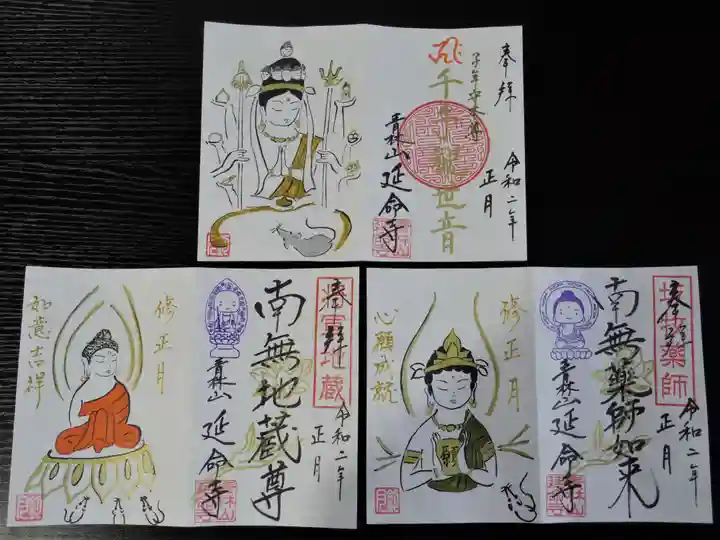 奉拝
令和二年
正月
子年守本尊
千手観世音
青林山 延命寺
奉拝
令和二年
正月
南無地蔵尊
青林山 延命寺
修正月
如意吉祥
奉拝
令和二年
正月
南無薬師如来
青林山 延命寺
修正月
心願成就
願